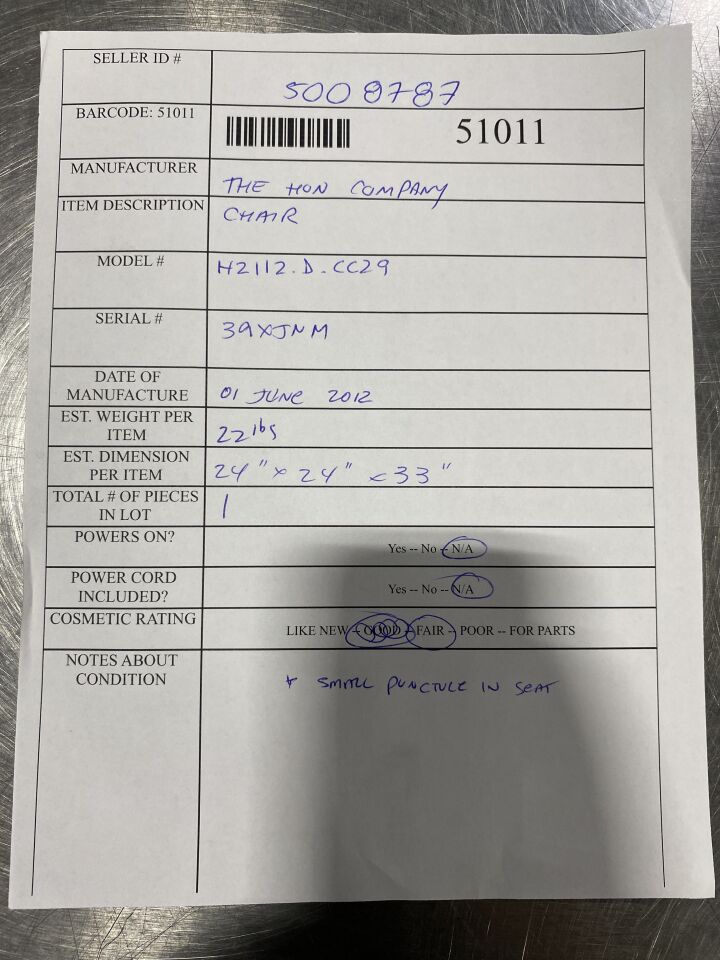 SELLER ID #
5008787
BARCODE: 51011
51011
MANUFACTURER
THE HON COMPANY
ITEM DESCRIPTION
CHAIR
MODEL #
H2112.D.CC29
SERIAL #
39XJNM
DATE OF
MANUFACTURE
01 JUNE 2012
EST. WEIGHT PER
ITEM
22 lbs
EST. DIMENSION
PER ITEM
24" x 24" x 33"
TOTAL # OF PIECES
IN LOT
1
POWERS ON?
Yes -- No -- N/A
POWER CORD
INCLUDED?
Yes -- No -- N/A
COSMETIC RATING
LIKE NEW -- GOOD -- FAIR -- POOR -- FOR PARTS
NOTES ABOUT
CONDITION
* SMALL PUNCTURE IN SEAT